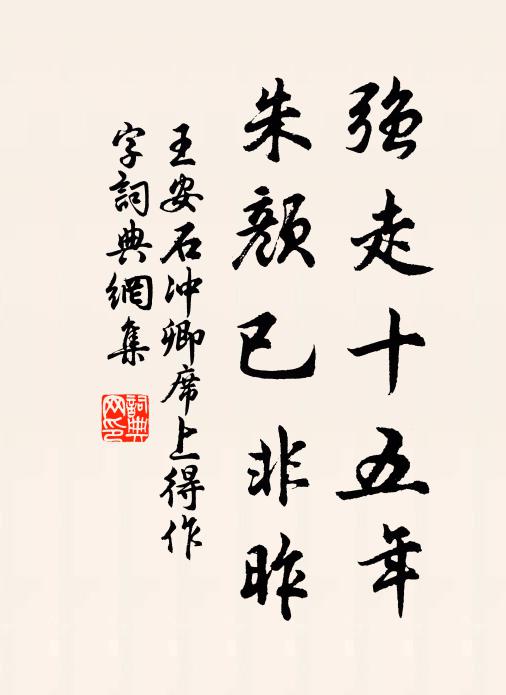 强走十五年
朱顏已非昨
王安石冲卿席上得作
字詞典網集
詞典網印